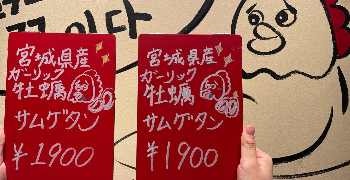 宮城県産
ガーリック
牡蠣
サムゲタン
¥1900
宮城県産
ガーリック
牡蠣
サムゲタン
¥1900